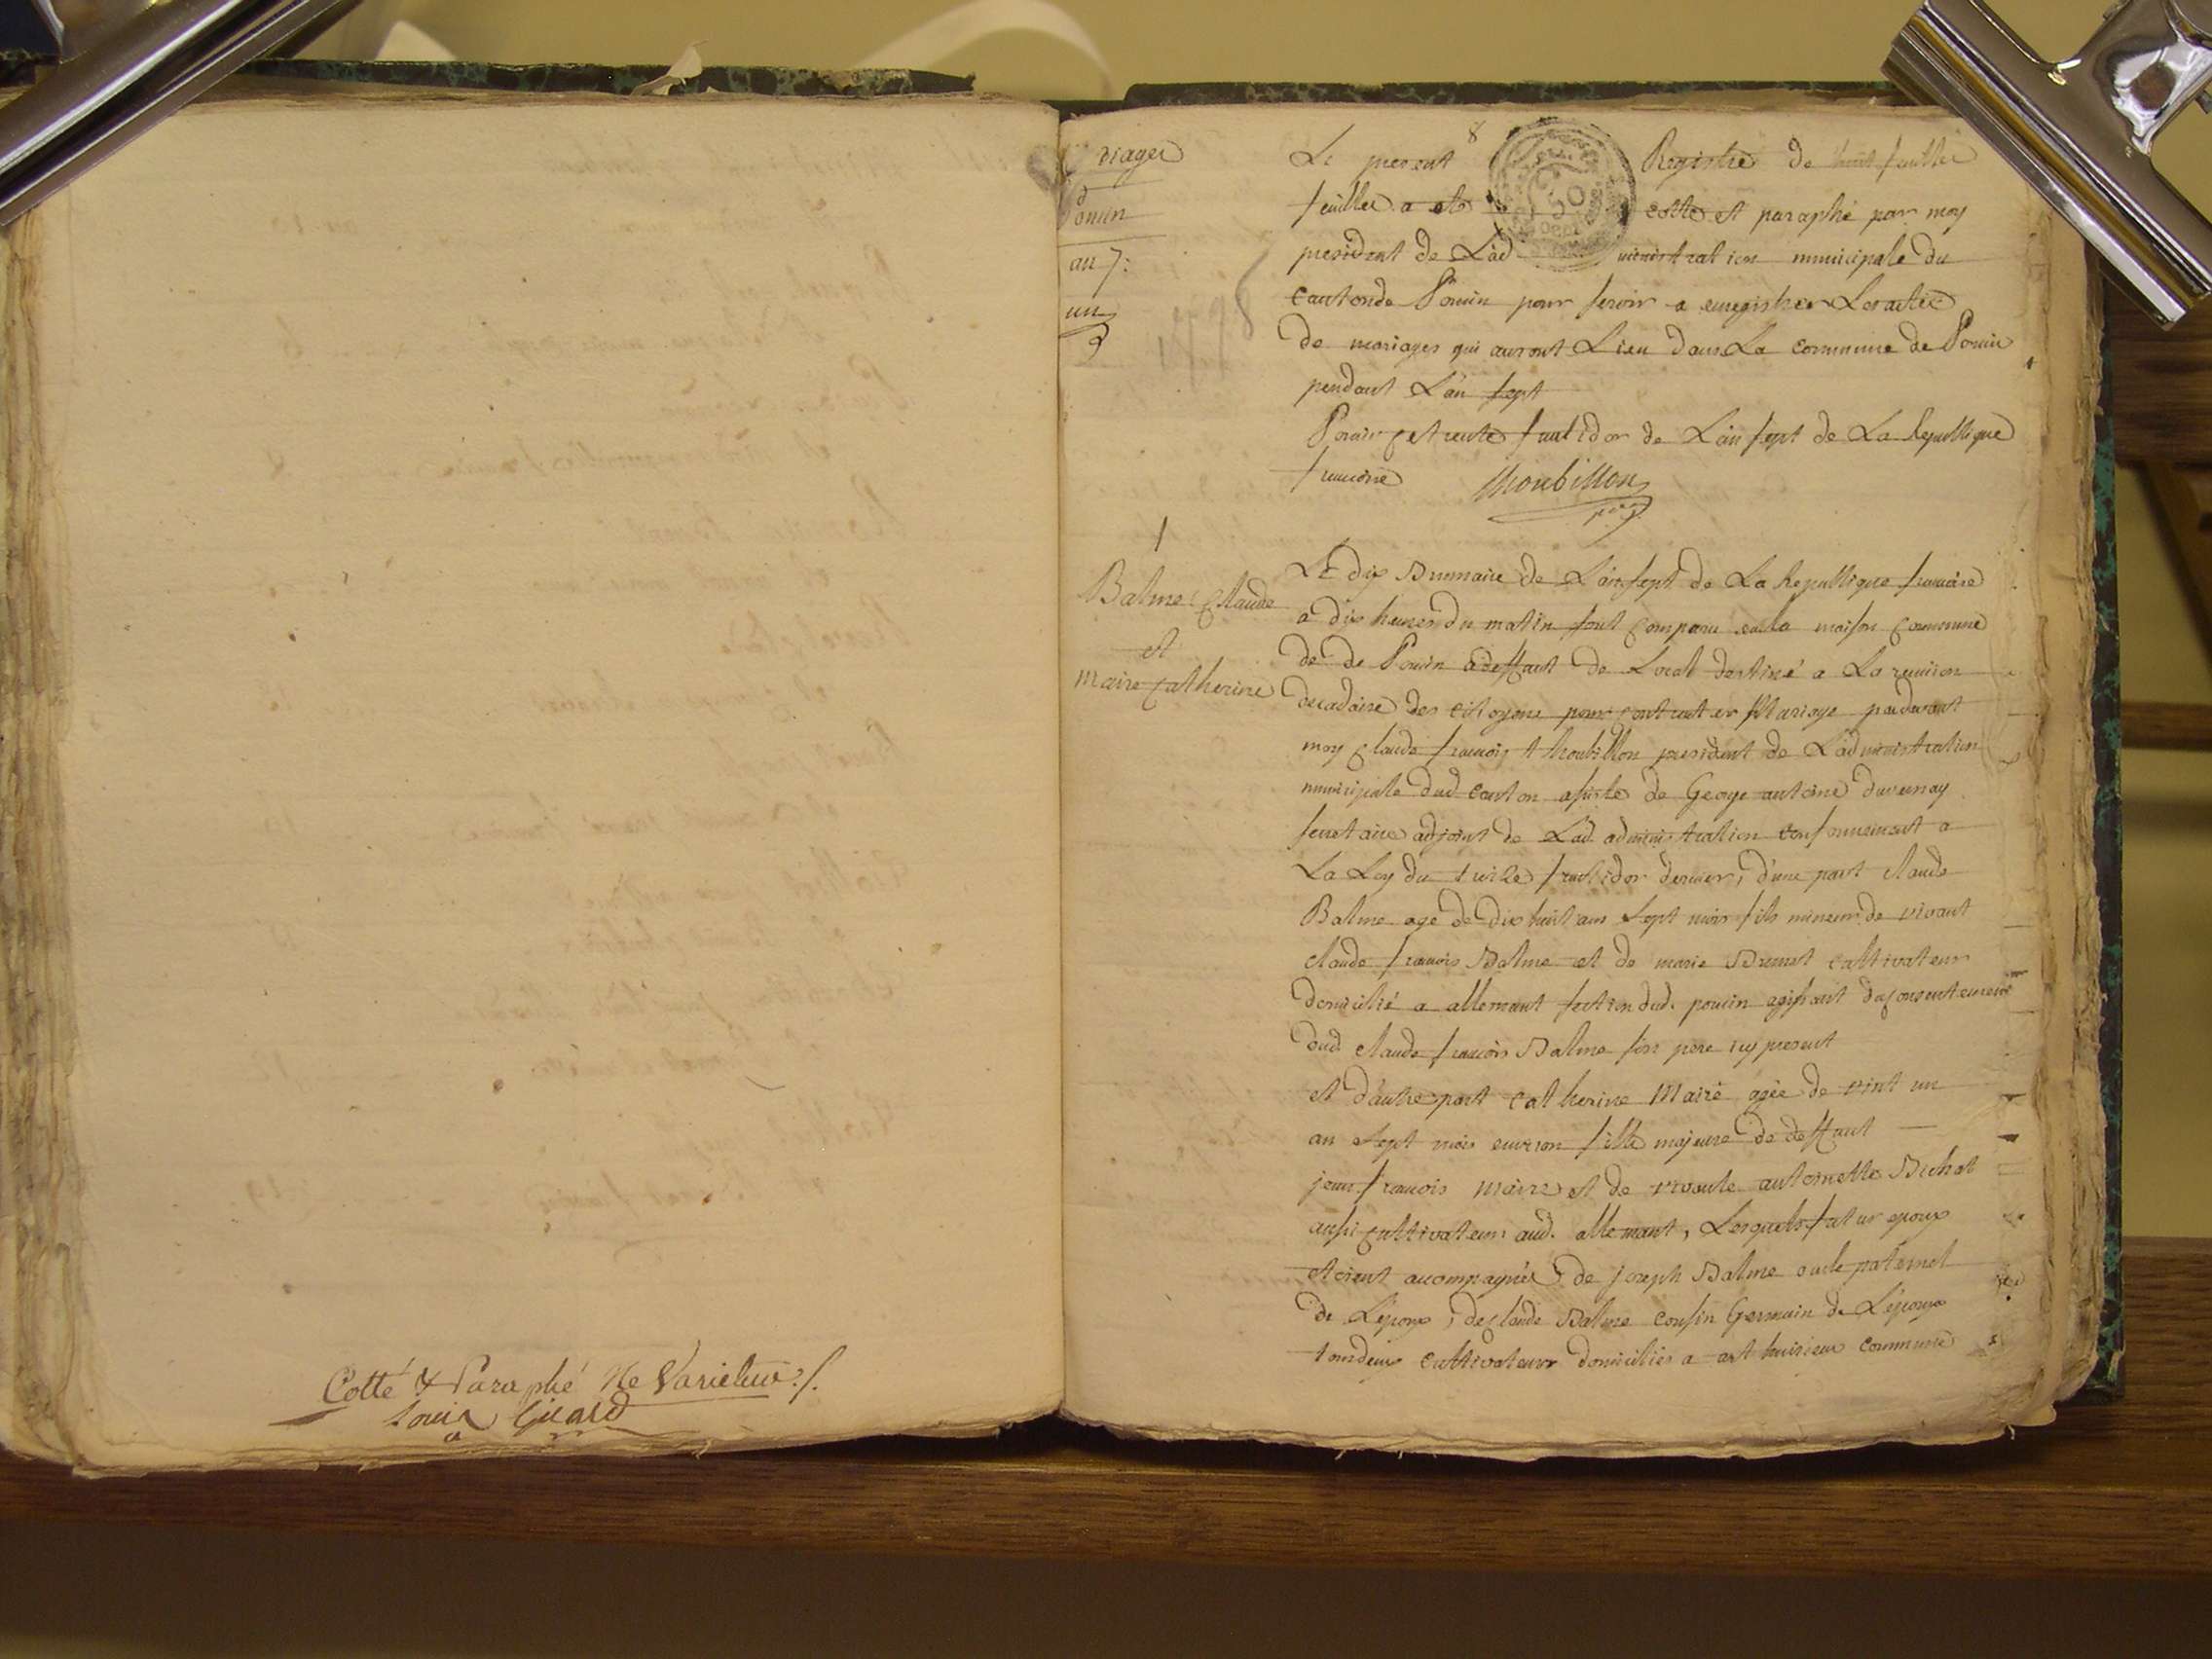 Cotté & Paraphé Ne Varietur ./.
Louis Girard
riages
Poncin
an 7:
un
1798
8
Le present Registre de huit feuilles
feuillets a eté cotté et paraphé par moy
president de L'administration municipale du
canton de Poncin pour servir a enregistrer Les actes
de mariages qui auront Lieu dans La commune de Poncin
pendant L'an sept
Poncin ce trente fructidor de L'an sept de La Republique
francoise Thoubillon
1
Balme Claude
et
Maire Catherine
Le dix Brumaire de L'an sept de La Republique francaise
a dix heures du matin sont comparu en la maison commune
de de Poncin a deffaut de Local destiné a La reunion
decadaire des citoyens pour contracter Mariage pardevant
moy Claude francois Thoubillon president de L'administration
municipale dud canton assisté de George antoine duvernay
secretaire adjoint de Lad. administration conformement a
La Loy du treize fructidor dernier, d'une part claude
Balme agé de dix huit ans sept mois fils mineur de vivant
claude francois Balme et de marie Brunet cultivateur
domicilié a allemant section dud. poncin agissant du consentement
dud. claude francois Balme son pere icy present
et d'autre part catherine Maire agée de vint un
an sept mois environ fille majeure de deffunt
jean francois maire et de vivante antoinette Bichat
aussi cultivateurs aud. allemant, Lesquels futur epoux
etoient accompagnés de joseph Balme oncle paternel
de L'epoux, de Claude Balme cousin Germain de L'epoux
tous deux cultivateurs domiciliés a commune